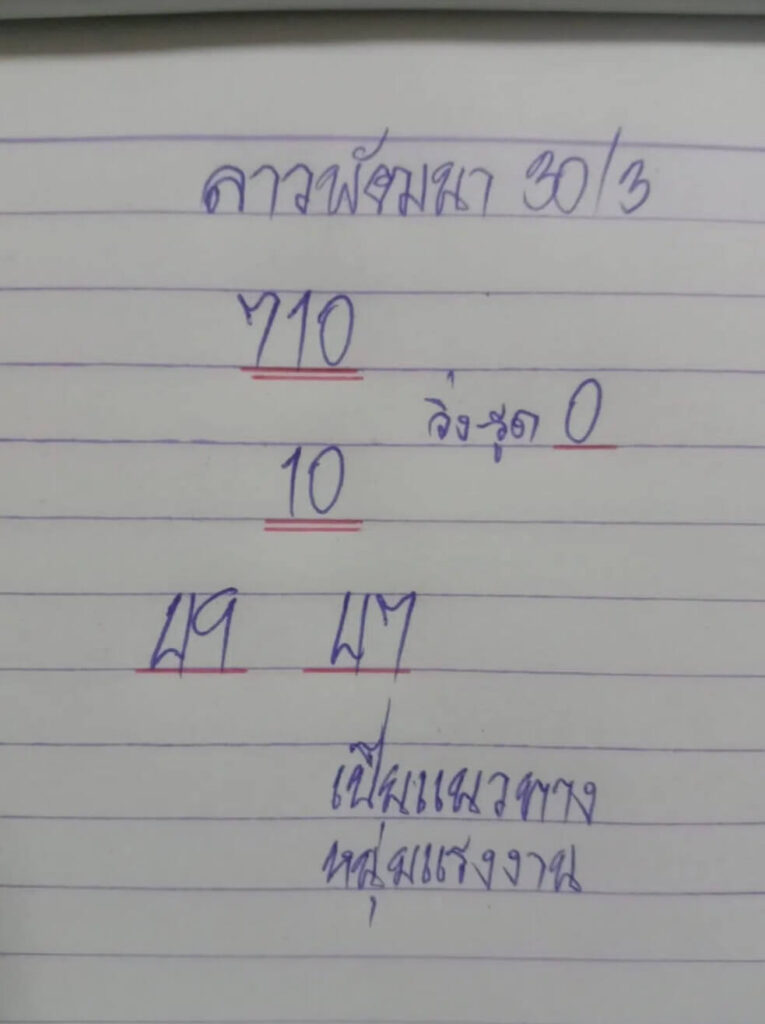 ลาวพัฒนา 30/3
710
วิ่ง-รูด 0
10
49 47
เป็นแนวทาง
หนุ่มแรงงาน